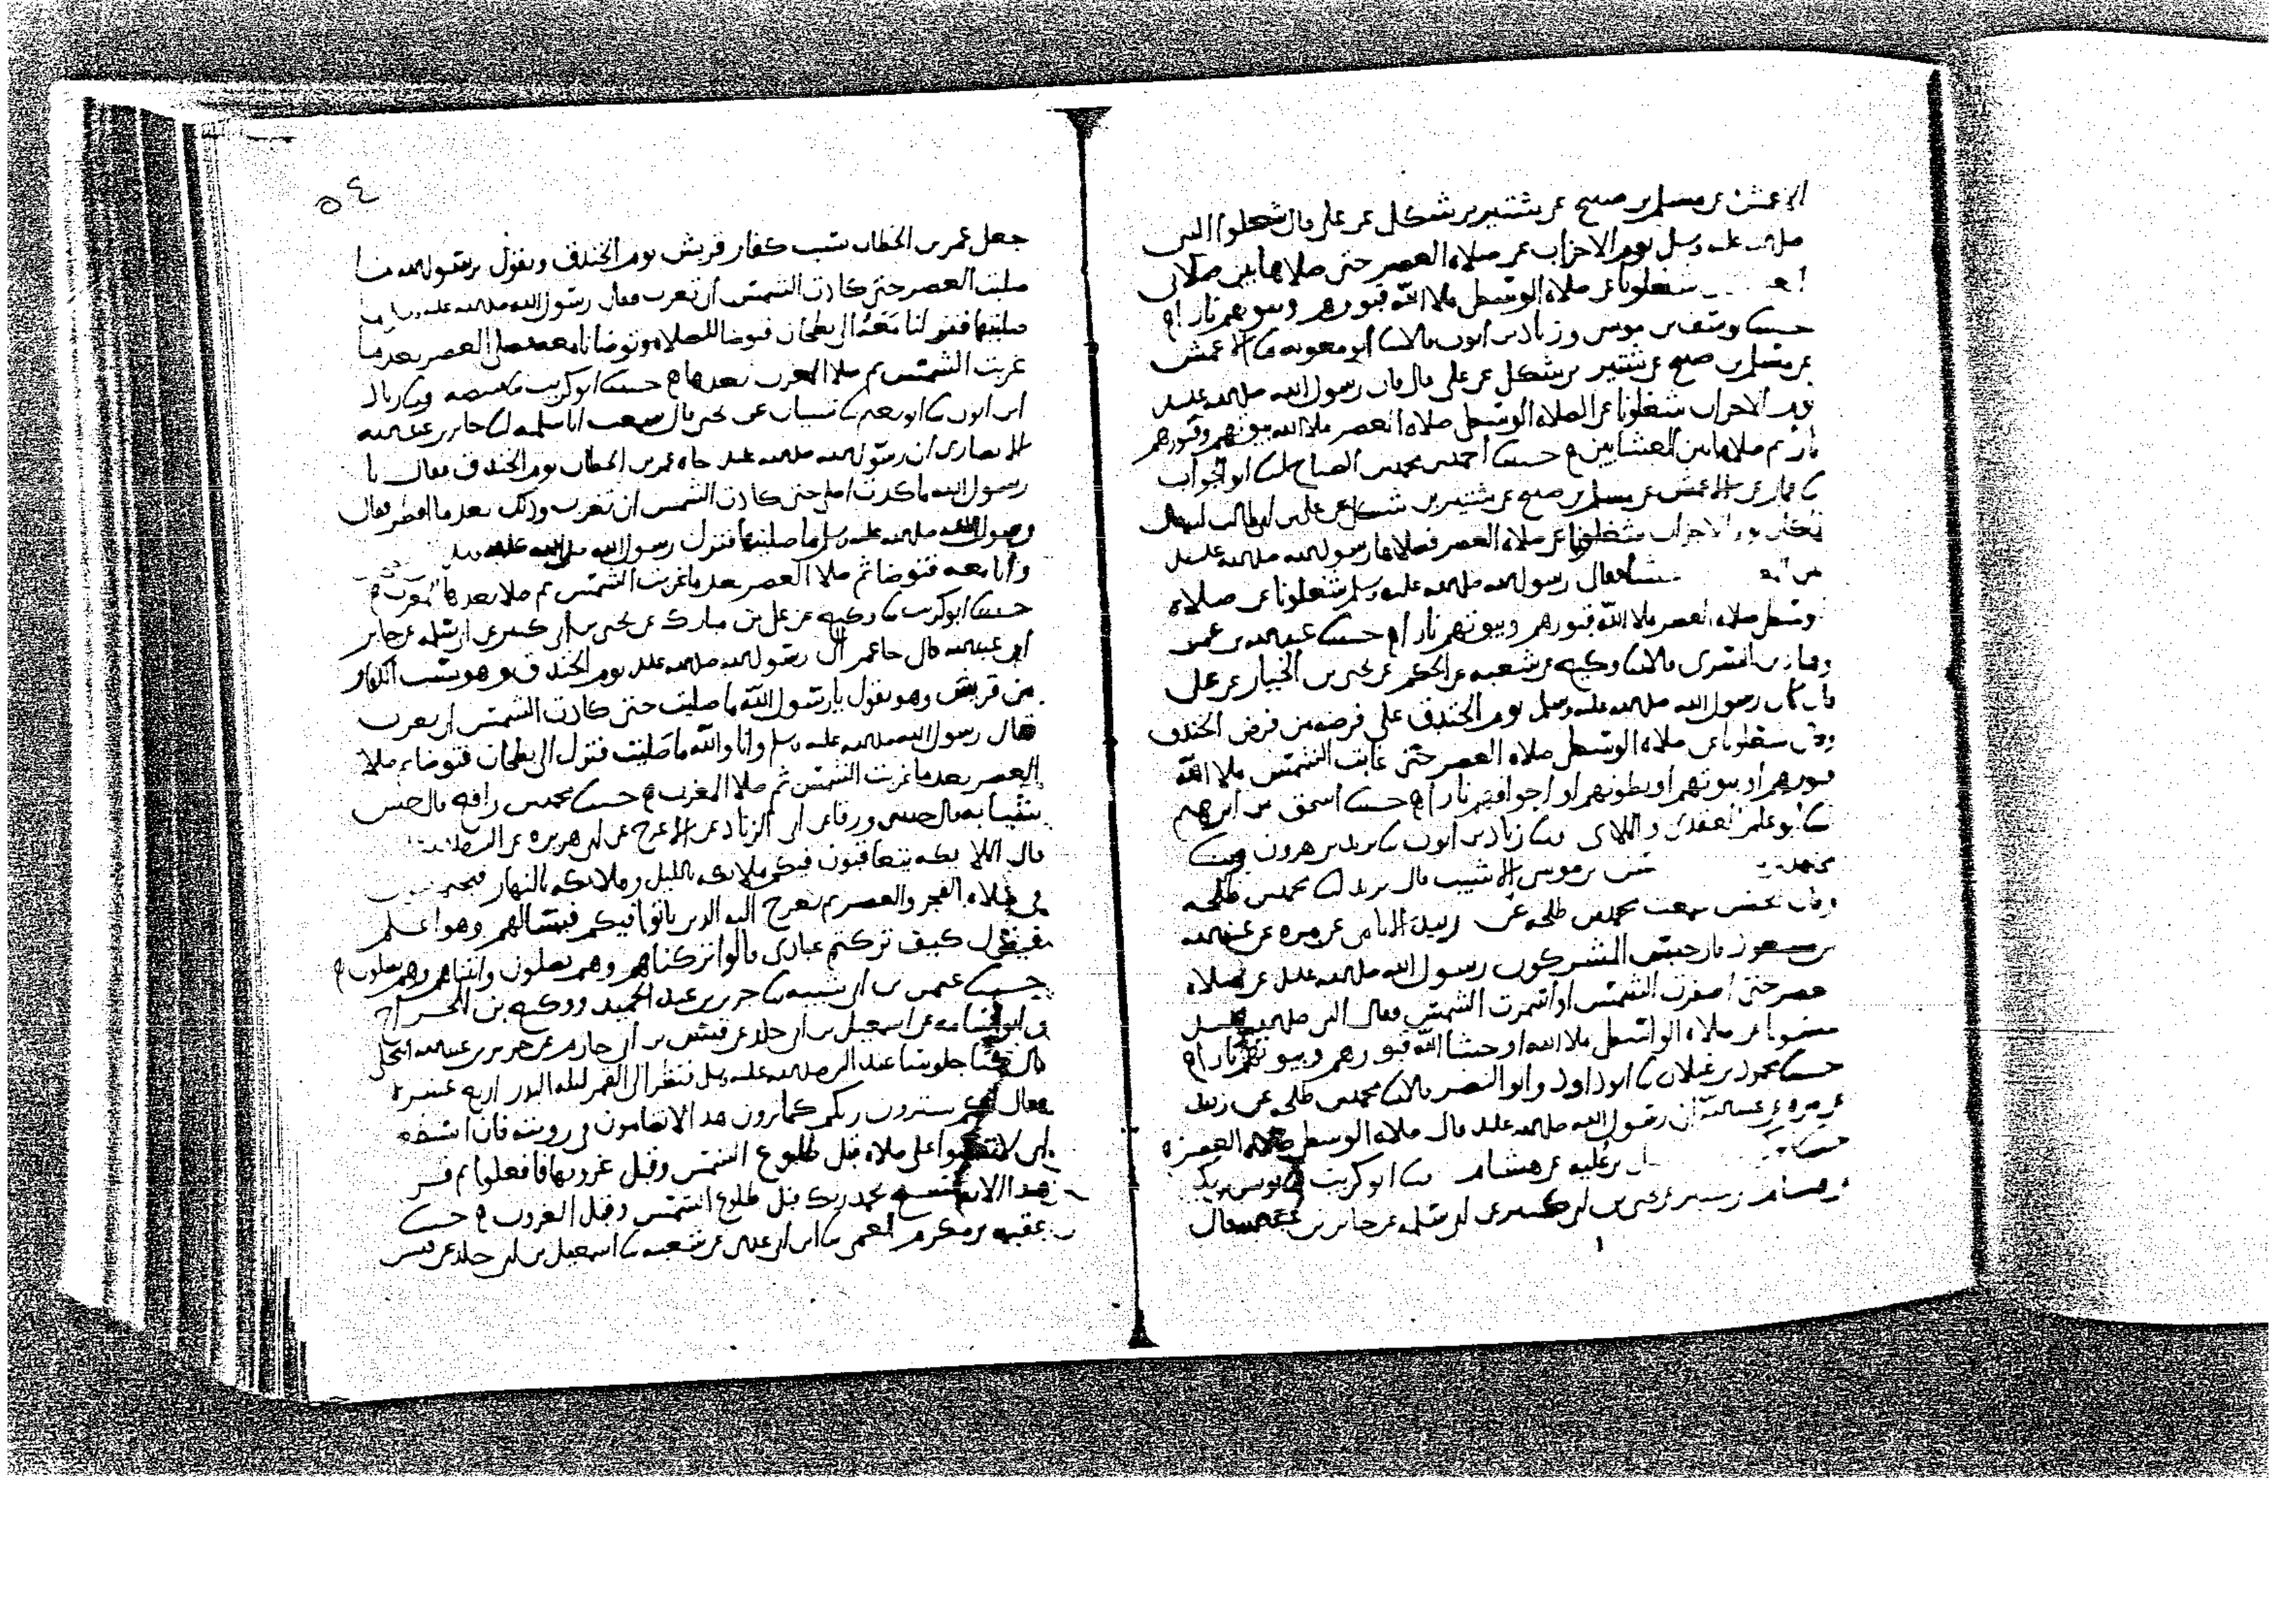 الاعمش عن مسلم بن صبيح عن شتير بن شكل عن علي قال شغلوا النبي
صلى الله عليه وسلم يوم الاحزاب عن صلاة العصر حتى صلاها بين صلاتي
شغلونا عن صلاة الوسطى ملا الله قبورهم وبيوتهم نارا
حدثنا يوسف بن موسى وزياد بن ايوب قالا ثنا ابو معويه ثنا الاعمش
عن مسلم بن صبيح عن شتير بن شكل عن علي قال قال رسول الله صلى الله عليه
يوم الاحزاب شغلونا عن الصلاة الوسطى صلاة العصر ملا الله بيوتهم وقبورهم
نارا ثم صلاها بين العشايين حدثنا احمد بن محمد بن الصباح ثنا ابو الجواب
ثنا عمار عن الاعمش عن مسلم بن صبيح عن شتير بن شكل عن علي بن ابي طالب
يوم الاحزاب شغلونا عن صلاة العصر فصلاها رسول الله صلى الله عليه
فقال رسول الله صلى الله عليه وسلم شغلونا عن صلاة
الوسطى صلاة العصر ملا الله قبورهم وبيوتهم نارا حدثنا عبد الله بن عمر
قالا ثنا وكيع عن شعبه عن الحكم عن يحيى بن الجزار عن علي
قال كان رسول الله صلى الله عليه وسلم يوم الخندق على فرضه من فرض الخندق
وقال شغلونا عن صلاة الوسطى صلاة العصر حتى غابت الشمس ملا الله
قبورهم او بيوتهم او بطونهم او اجوافهم نارا حدثنا اسحق بن ابرهيم
ثنا ابو عامر العقدي وثنا زياد بن ايوب ثنا يزيد بن هرون وثنا
بن موسى الاشيب قال يزيد انا محمد بن طلحه
وقال سمعت محمد بن طلحه عن زبيد اليامي عن مره عن عبد الله
بن مسعود قال حبس المشركون رسول الله صلى الله عليه عن صلاة
العصر حتى اصفرت الشمس او احمرت الشمس فقال النبي صلى الله عليه
شغلونا عن صلاة الوسطى ملا الله او حشا الله قبورهم وبيوتهم نارا
حدثنا محمود بن غيلان ثنا ابو داود وابو النصر قالا ثنا محمد بن طلحه عن زبيد
عن مره عن عبد الله ان رسول الله صلى الله عليه قال صلاة الوسطى صلاة العصر
بن عليه عن هشام وثنا ابو كريب ثنا يونس بن بكير
عن يحيى بن ابي كثير عن ابي سلمه عن جابر بن عبد الله قال
٥٤
جعل عمر بن الخطاب يسب كفار قريش يوم الخندق ويقول يرسول الله ما
صليت العصر حتى كادت الشمس ان تغرب فقال رسول الله صلى الله عليه
صليتها فنزلنا معه الى بطحان فتوضا للصلاة وتوضانا معه فصلى العصر بعد ما
غربت الشمس ثم صلا المغرب بعدها حدثنا ابو كريب ثنا قبيصه وثنا زياد
ابن ايوب ثنا ابو نعيم ثنا شيبان عن يحيى قال سمعت ابا سلمه انا جابر بن عبد الله
الانصاري ان رسول الله صلى الله عليه جاه عمر بن الخطاب يوم الخندق فقال يا
رسول الله ما كدت اصلي حتى كادت الشمس ان تغرب وذلك بعد ما افطر فقال
رسول الله صلى الله عليه وسلم ما صليتها فنزل رسول الله صلى الله عليه وسلم
وانا معه فتوضا ثم صلا العصر بعد ما غربت الشمس ثم صلا بعدها المغرب
حدثنا ابو كريب ثنا وكيع عن علي بن مبارك عن يحيى بن ابي كثير عن ابي سلمه عن جابر
ابن عبد الله قال جا عمر الى رسول الله صلى الله عليه يوم الخندق وهو يسب الكفار
من قريش وهو يقول يا رسول الله ما صليت حتى كادت الشمس ان تغرب
فقال رسول الله صلى الله عليه وسلم وانا والله ما صليت فنزل الى بطحان فتوضا ثم صلا
العصر بعد ما غربت الشمس ثم صلا المغرب حدثنا محمد بن رافع قال حدثني
شبابه قال حدثني ورقا عن ابي الزناد عن الاعرج عن ابي هريره عن
قال الملايكه يتعاقبون فيكم ملايكه بالليل وملايكه بالنهار
في صلاة الفجر والعصر ثم يعرج اليه الذين باتوا فيكم فيسالهم وهو اعلم
فيقول كيف تركتم عبادي قالوا تركناهم وهم يصلون واتيناهم وهم يصلون
حدثنا عثمن بن ابي شيبه ثنا جرير بن عبد الحميد ووكيع بن الجراح
وابو اسامه عن اسمعيل بن ابي خلد عن قيس بن ابي حازم عن جرير بن عبد الله البجلي
قال كنا جلوسا عند النبي صلى الله عليه وسلم فنظر الى القمر ليله البدر اربع عشره
فقال سترون ربكم كما ترون هذا لا تضامون في رويته فان استطعتم
ان لا تغلبوا على صلاة قبل طلوع الشمس وقبل غروبها فافعلوا ثم قرا
هذا الايه فسبح بحمد ربك قبل طلوع الشمس وقبل الغروب حدثنا
عقبه بن مكرم العمي ثنا ابن ابي عدي عن شعبه ثنا اسمعيل بن ابي خلد عن قيس